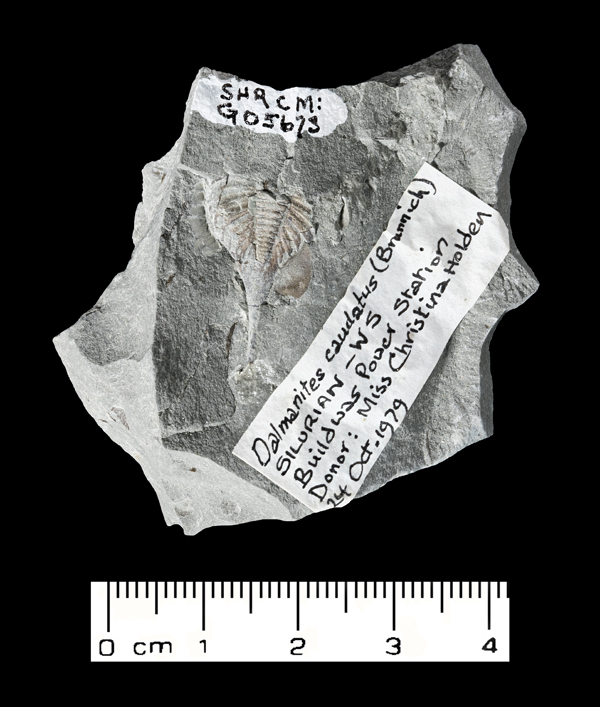 SHRCM:
G05673
Dalmanites caudatus (Brunnich)
SILURIAN - WS
Buildwas Power Station
Donor: Miss Christina Holden
24 Oct. 1979
0 cm 1 2 3 4